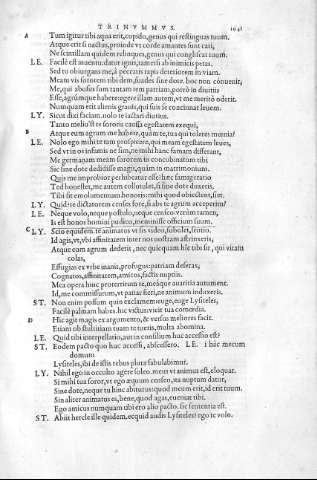 TRINVMMVS. 1041
A Tum igitur tibi aqua erit, cupido, genus qui restinguas tuum.
Atque erit si nactus, proinde vt corde amantes sunt cati,
Ne scintillam quidem relinques, genus qui congliscat tuum.
LE. Facilè est inuentu. datur ignis, tametsi ab inimicis petas.
Sed tu obiurgans me, à peccatis rapis deteriorem in viam.
Meam vis sororem tibi dem, suades sine dote. hoc non conuenit,
Me, qui abusus sum tantam rem patriam, porrò in diuitiis
Esse, agrúmque habere: egere illam autem, vt me meritò oderit.
Numquam erit alienis grauis, qui suis se concinnat leuem.
LY. Sicut dixi faciam. nolo te iactari diutius.
Tanto meliust te sororis caussa egestatem exequi,
B Atque eum agrum me habere, quàm te, tua qui toleres mœnia?
LE. Nolo ego mihi te tam prospicere, qui meam egestatem leues,
Sed vt inops infamis ne sim, ne mihi hanc famam differant,
Me germanam meam sororem in concubinatum tibi
Sic sine dote dedisse magis, quàm in matrimonium.
Quis me improbior perhibeatur esse? hæc famigeratio
Ted honestet, me autem collutulet, si sine dote duxeris.
Tibi sit emolumentum honoris: mihi quod obiectent, siet.
LY. Quid? te dictatorem censes fore, si abs te agrum acceperim?
LE. Neque volo, neque postulo, neque censeo: verùm tamen,
Is est honos homini pudico, meminisse officium suum.
C LY. Scio equidem te animatus vt sis. video, subolet, sentio.
Id agis, vt, vbi affinitatem inter nos nostram astrinxeris,
Atque eum agrum dederis, nec quicquam hîc tibi sit, qui vitam
colas,
Effugias ex vrbe inanis, profugus: patriam deseras,
Cognatos, affinitatem, amicos, factis nuptiis.
Mea opera hinc proterritum te, meáque auaritia autument.
Id, me commissurum, vt patiar fieri, ne animum induxeris.
ST. Non enim possum quin exclamem: euge, euge Lysiteles,
Facilè palmam habes. hic victust: vicit tua comœdia.
D Hic agit magis ex argumento, & versus meliores facit.
Etiam ob stultitiam tuam te tueris, multa abomina.
LE. Quid tibi interpellatio, aut in consilium huc accessio est?
ST. Eodem pacto quo huc accessi, abscessero. LE. I hàc mecum
domum
Lysiteles, ibi de istis rebus plura fabulabimur.
LY. Nihil ego in occulto agere soleo. meus vt animus est, eloquar.
Si mihi tua soror, vt ego æquum censeo, ita nuptum datur,
Sine dote, neque tu hinc abiturus: quod meum erit, id erit tuum.
Sin aliter animatus es, bene, quod agas, eueniat tibi.
Ego amicus numquam tibi ero alio pacto. sic sententia est.
ST. Abiit hercle ille quidem. ecquid audis Lysiteles? ego te volo.